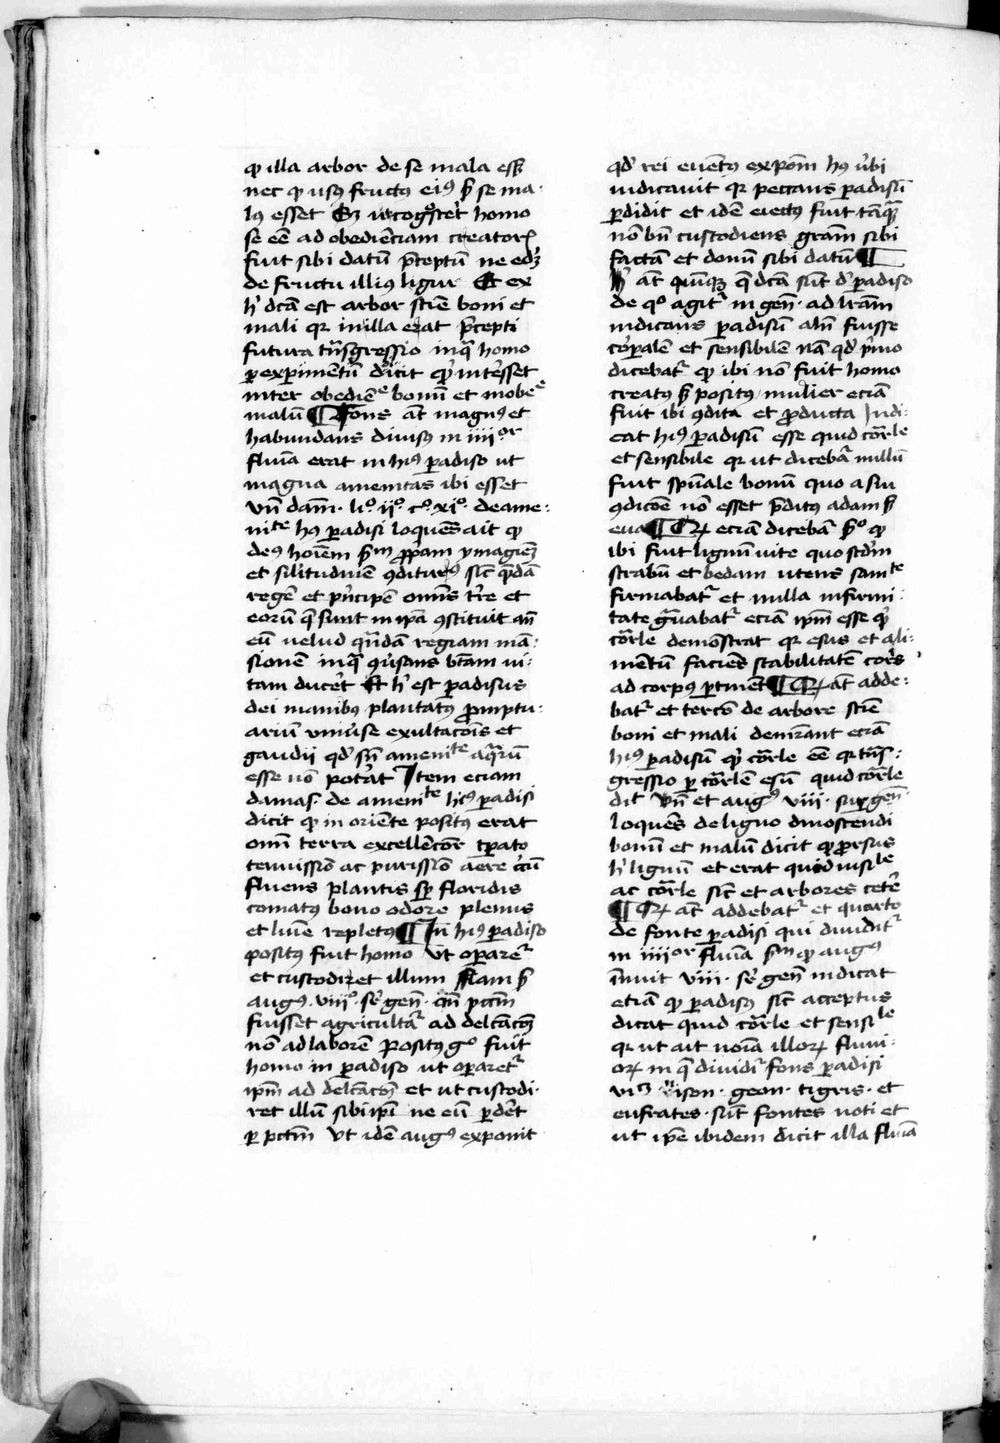 qꝫ illa arbor de se mala esset
nec qꝫ usꝰ fructꝰ eiꝰ s̄ se ma-
lꝰ esset Sꝫ ut cogͦsceret homo
se eē ad obediēciam creatorꝭ
fuit sibi datū p̄ceptū ne edꝫ
de fructu illiꝰ ligni Et ex
h̄ dc̄a est arbor scīe boni et
mali qr in illa erat p̄cepti
futura tn̄sgressio in qͣ homo
ꝑ exꝑimentū dicit qͥd int̄esset
inter obediēᵉ bonū et inobeᵉ
malū ¶ Fons āt magnꝰ et
habundans diuisꝰ in iiiiᵒʳ
fluīa erat in hꝰ ꝑadiso ut
magna amenitas ibi esset
Vn̄ dam̄. liº. ijº. cº. xiº. de ame-
niᵗᵉ hꝰ ꝑadisi loquēs ait qꝫ
deꝰ hoīem s̄ᵐ ꝓpͥam ymaginē
et sil̄itudinē ꝯditurꝰ sic̄ qͥdā
regē et pͥncipē omīs tr̄e et
eorū q̄ sunt in ip̄a ꝯstituit an̄
eū uelud qn̄dā regiam mā-
sionē in qͣ ꝯuͥsans bt̄am ui-
tam ducēt Et h̄ est ꝑadisus
dei manibꝰ plantatꝰ ꝓmptu-
ariū uniuͥse exultacōis et
gaudii qd̄ sn̄ ameniᵗᵉ aqͣrū
esse nō pot̄at Item eciam
damas. de ameniᵗᵉ hꝰ ꝑadisi
dicit qꝫ in oriēte positꝰ erat
omī terra excellēcior tꝑato
tenuissiō ac purissiō aere cͥcū
fluens plantis sꝑ floridis
comatꝰ bono odore plenus
et luīe repletꝰ ¶ In hꝰ ꝑadiso
positꝰ fuit homo ut oꝑaret̄
et custodiret illum Nam s̄
augꝰ. viiiº. suꝑ gen̄. an̄ pctm̄
fuisset agricultā ad delc̄acōꝫ
nō ad laborē positꝰ gº fuit
homo in ꝑadiso ut oꝑaret̄
ip̄m ad delc̄acōꝫ et ut custodi-
ret illū sibi ip̄i ne eū ꝑdēt
ꝑ pctm̄ Vt idē augꝰ exponit
qd̄ rei euētꝰ expōm hꝰ uͥbi
iudicauit qr peccans ꝑadisū
ꝑdidit et idē eiectꝰ fuit tāqͣ
nō bn̄ custodiens grām sibi
factā et donū sibi datū ¶
H̄ āt quīqꝫ q̄ dc̄a sūt dͤ ꝑadiso
de qº agit̄ in gen̄. ad lr̄am
indicans ꝑadisū aln̄ fuisse
corꝑalē et sensibilē nā qd̄ pͥmo
dicebat̄ qꝫ ibi nō fuit homo
creatꝰ s̄ positꝰ mulier eciā
fuit ibi ꝯdita et ꝓducta Indi-
cat hꝰ ꝑadisū esse quid cōrle
et sensibile qr ut dicebat̄ nullū
fuit spūale bonū quo a sui
ꝯdicōe nō esset p̄ditꝰ adam s̄
eua ¶ Qꝫ eciam dicebat̄ sºº qꝫ
ibi fuit lignū uite quo scd̄m
strabū et bedam utens samᵗᵉ
firmabat̄ et nulla infirmi-
tate gͣuabat̄ eciā ip̄m esse qͥd
cōrle demōstrat qr esus et ali-
mētū faciēs stabilitatē cor̄s
ad corpꝰ ꝑtinēt ¶ Qꝫ āt adde-
bat̄ et tercō de arbore scīe
boni et mali demr̄ant eciā
hꝰ ꝑadisū qͥd cōrle eē qr tn̄s-
gressio ꝑ cōrlē esū quid cōrle
dīt Vn̄ et augꝰ viii. suꝑ gen̄.
loquēs de ligno dinoscendi
bonū et malū dicit qꝫ ꝓrsus
h̄ lignū et erat quid uisiˡᵉ
ac cōrle sic̄ et arbores cetēre
¶ Qꝫ āt addebat̄ et quarto
de fonte ꝑadisi qui diuidit̄
in iiiiᵒʳ fluīa s̄ᵐ qꝫ augꝰ
īnuit viii. suꝑ gen̄ indicat
eciā qꝫ ꝑadisꝰ sic̄ acceptus
dicat quid cōrle et sensiˡᵉ
qr ut ait noīa illorꝝ fluui-
orꝝ in q̄ diuidit̄ fons ꝑadisi
viꝫ. phison. geon. tigris. et
eufrates. sūt fontes noti et
ut ip̄e ibidem dicit illa fluīa